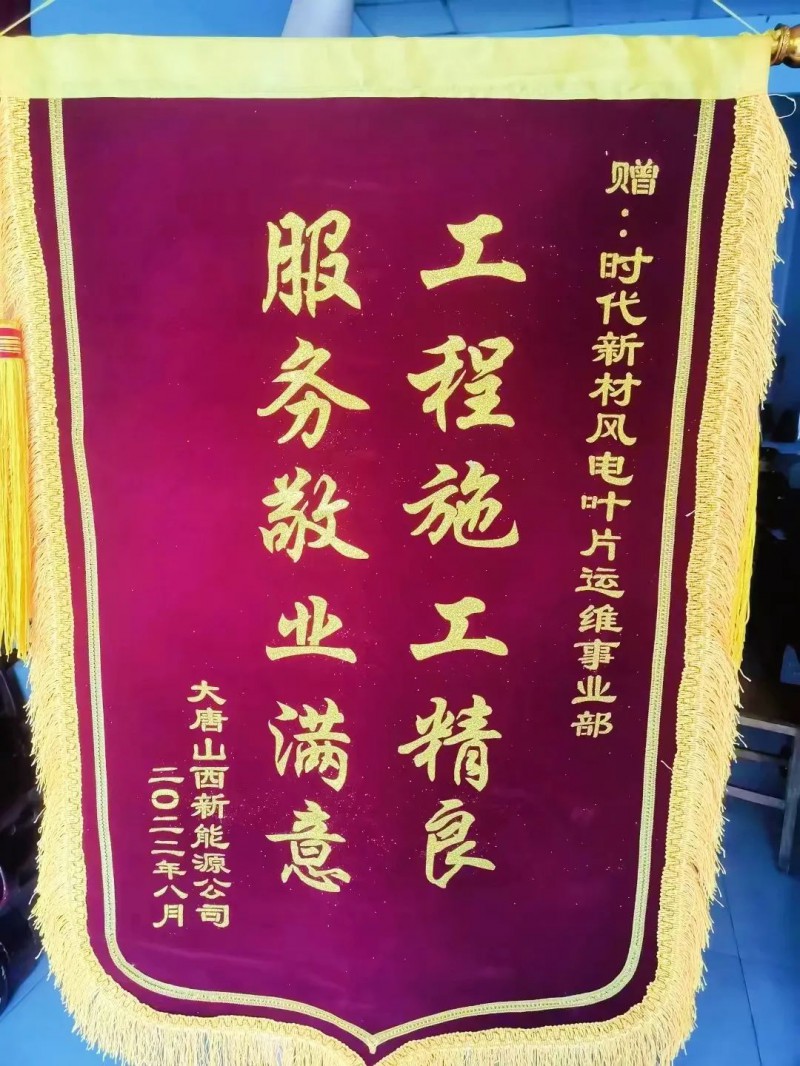 赠：时代新材风电叶片运维事业部
工程施工精良
服务敬业满意
大唐山西新能源公司
二〇二二年八月